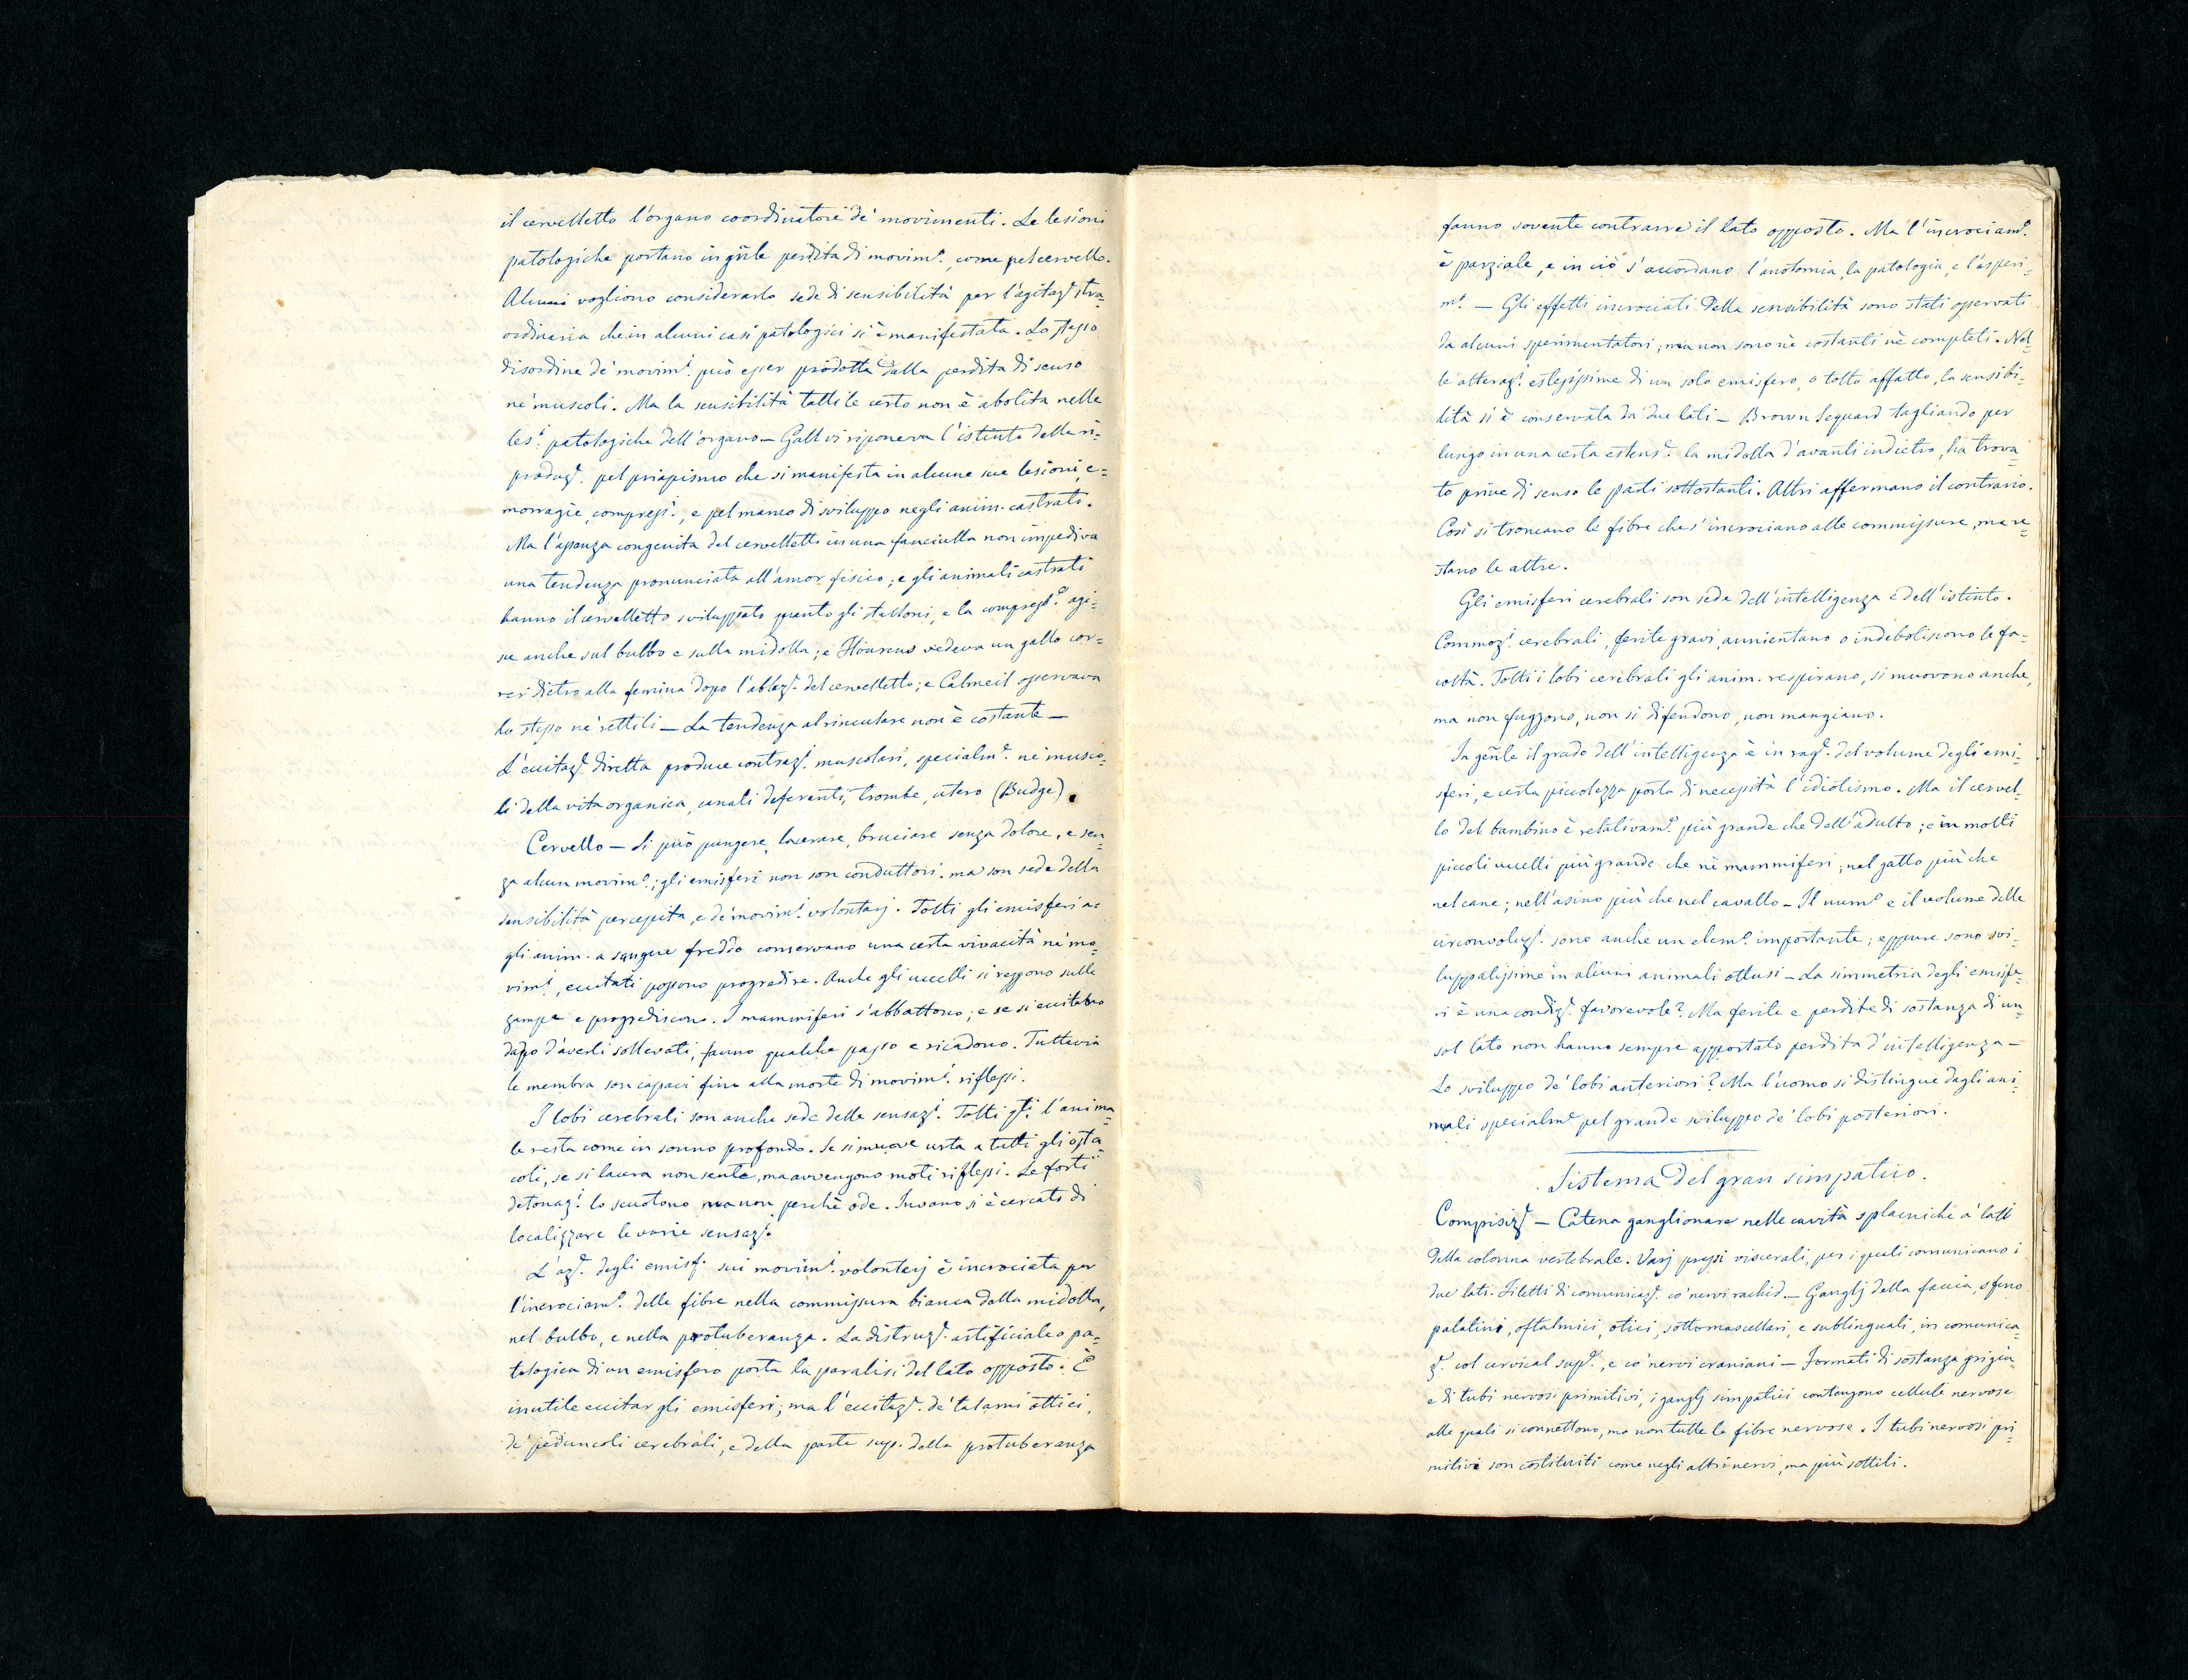 il cervelletto l'organo coordinatore de' movimenti. Le lesioni
patologiche portano in gñle perdita di movimº., come pel cervello.
Alcuni vogliono considerarlo sede di sensibilità per l'agitazᵉ stra=
ordinaria che in alcuni casi patologici si è manifestata. Lo stesso
disordine de' movimⁱ. può esser prodotto dalla perdita di senso
ne' muscoli. Ma la sensibilità tattile certo non è abolita nelle
lesⁱ. patologiche dell'organo — Gall vi riponeva l'istinto della ri=
produzᵉ. pel priapismo che si manifesta in alcune sue lesioni, e=
morragie, compressⁱ., e pel manco di sviluppo negli anim. castrati.
Ma l'assenza congenita del cervelletto in una fanciulla non impediva
una tendenza pronunciata all'amor fisico; e gli animali castrati
hanno il cervelletto sviluppato quanto gli stalloni, e la compressᵉ. agi=
sce anche sul bulbo e sulla midolla; e Flourens vedeva un gallo cor=
rer dietro alla femina dopo l'ablazᵉ. del cervelletto; e Calmeil osservava
lo stesso ne' rettili — La tendenza al rinculare non è costante —
L'eccitazᵉ. diretta produce contrazⁱ. muscolari, specialmᵉ. ne' musco=
li della vita organica, canali deferenti, trombe, utero (Budge).
Cervello — Si può pungere, lacerare, bruciare senza dolore, e sen=
za alcun movimº.; gli emisferi non son conduttori. ma son sede della
sensibilità percepita, e de' movimⁱ. volontarj. Tolti gli emisferi a=
gli anim. a sangue freddo conservano una certa vivacità ne' mo=
vimⁱ., eccitati possono progredire. Anche gli uccelli si reggono sulle
zampe e progrediscono. I mammiferi s'abbattono; e se si eccitano
dopo d'averli sollevati, fanno qualche passo e ricadono. Tuttavia
le membra son capaci fino alla morte di movimⁱ. riflessi.
I lobi cerebrali son anche sede delle sensazⁱ. Tolti qtⁱ. l'anima=
le resta come in sonno profondo. Se si muove urta a tutti gli osta=
coli, se si lacera non sente, ma avvengono moti riflessi. Le forti
detonazⁱ. lo scuotono ma non perchè ode. Invano si è cercato di
localizzare le varie sensazⁱ.
L'azᵉ. degli emisf. sui movimⁱ. volontarj è incrociata per
l'incrociamº. delle fibre nella commissura bianca della midolla,
nel bulbo, e nella protuberanza. La distruzᵉ. artificiale o pa=
tologica di un emisfero porta la paralisi del lato opposto. È
inutile eccitar gli emisferi; ma l'eccitazᵉ. de' talami ottici,
de' peduncoli cerebrali, e della parte sup. della protuberanza
fanno sovente contrarre il lato opposto. Ma l'incrociamº.
è parziale, e in ciò s'accordano l'anatomia, la patologia, e l'esperi=
mº. — Gli effetti incrociati della sensibilità sono stati osservati
da alcuni sperimentatori; ma non sono nè costanti nè completi. Nel=
le alterazⁱ. estesissime di un solo emisfero, o tolto affatto, la sensibi=
lità si è conservata da' due lati — Brown Sequard tagliando per
lungo in una certa estensᵉ. la midolla d'avanti indietro, ha trova=
to prive di senso le parti sottostanti. Altri affermano il contrario.
Così si troncano le fibre che s'incrociano alle commissure, ma re=
stano le altre.
Gli emisferi cerebrali son sede dell'intelligenza e dell'istinto.
Commozⁱ. cerebrali, ferite gravi, annientano o indeboliscono le fa=
coltà. Tolti i lobi cerebrali gli anim. respirano, si muovono anche,
ma non fuggono, non si difendono, non mangiano.
In gẽnle il grado dell'intelligenza è in ragᵉ. del volume degli emi=
sferi, e certa piccolezza porta di necessità l'idiotismo. Ma il cervel=
lo del bambino è relativamᵉ. più grande che dell'adulto; e in molti
piccoli uccelli più grande che ne' mammiferi; nel gatto più che
nel cane; nell'asino più che nel cavallo — Il numº. e il volume delle
circonvoluzⁱ. sono anche un elemº. importante; eppure sono svi=
luppatissime in alcuni animali ottusi — La simmetria degli emisfe=
ri è una condizᵉ. favorevole? Ma ferite e perdite di sostanza di un
sol lato non hanno sempre apportato perdita d'intelligenza —
Lo sviluppo de' lobi anteriori? Ma l'uomo si distingue dagli ani=
mali specialmᵉ pel grande sviluppo de' lobi posteriori.
Sistema del gran simpatico.
Composizᵉ — Catena ganglionare nelle cavità splacniche a' lati
della colonna vertebrale. Varj plessi viscerali, per i quali comunicano i
due lati. Filetti di comunicazᵉ. co' nervi rachid. — Ganglj della faccia, sfeno
palatini, oftalmici, otici, sottomascellari, e sublinguali, in comunica=
zᵉ. col cervical supᵉ., e co' nervi craniani — Formati di sostanza grigia
e di tubi nervosi primitivi, i ganglj simpatici contengono cellule nervose
alle quali si connettono, ma non tutte le fibre nervose. I tubi nervosi pri=
mitivi son costituiti come negli altri nervi, ma più sottili.